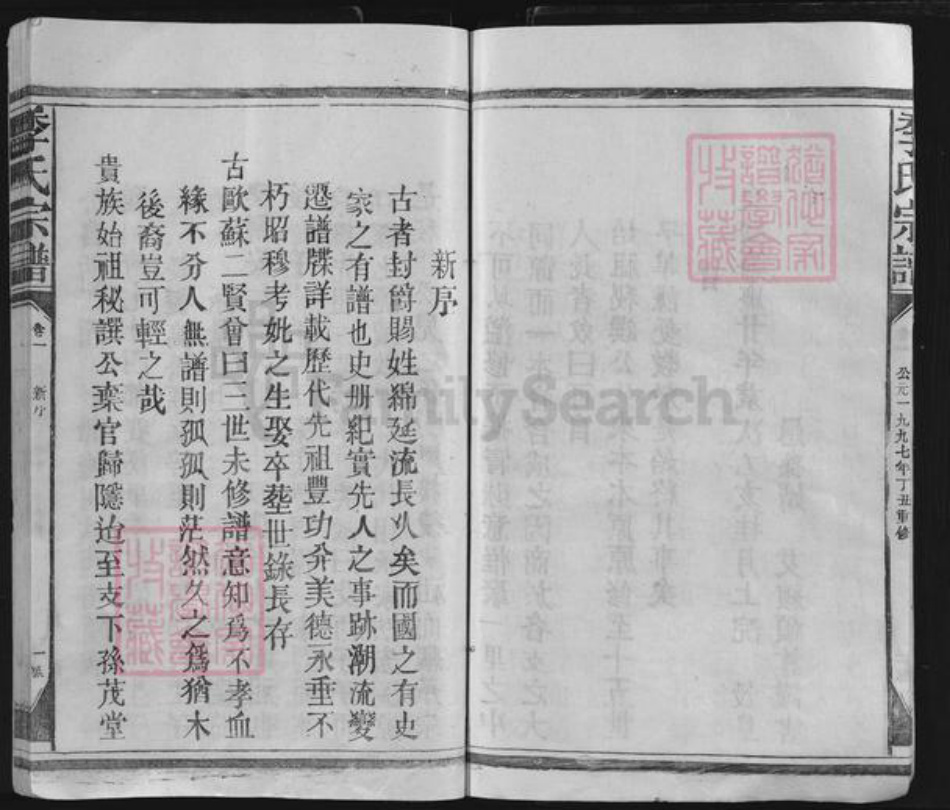 李氏宗譜
公元一九九七年丁丑重修
新序
古者封爵賜姓綿延流長久矣而國之有史
家之有譜也史册紀實先人之事跡潮流變
遷譜牒詳載歷代先祖豐功介美德永垂不
朽昭穆考妣之生娶卒塟世錄長存
古歐蘇二賢曾曰三世未修譜意知爲不孝血
緣不分人無譜則孤孤則茫然久之爲猶木
後裔豈可輕之哉
貴族始祖秘譔公棄官歸隱迨至支下孫茂堂
李氏宗譜
卷一
新序
FamilySearch